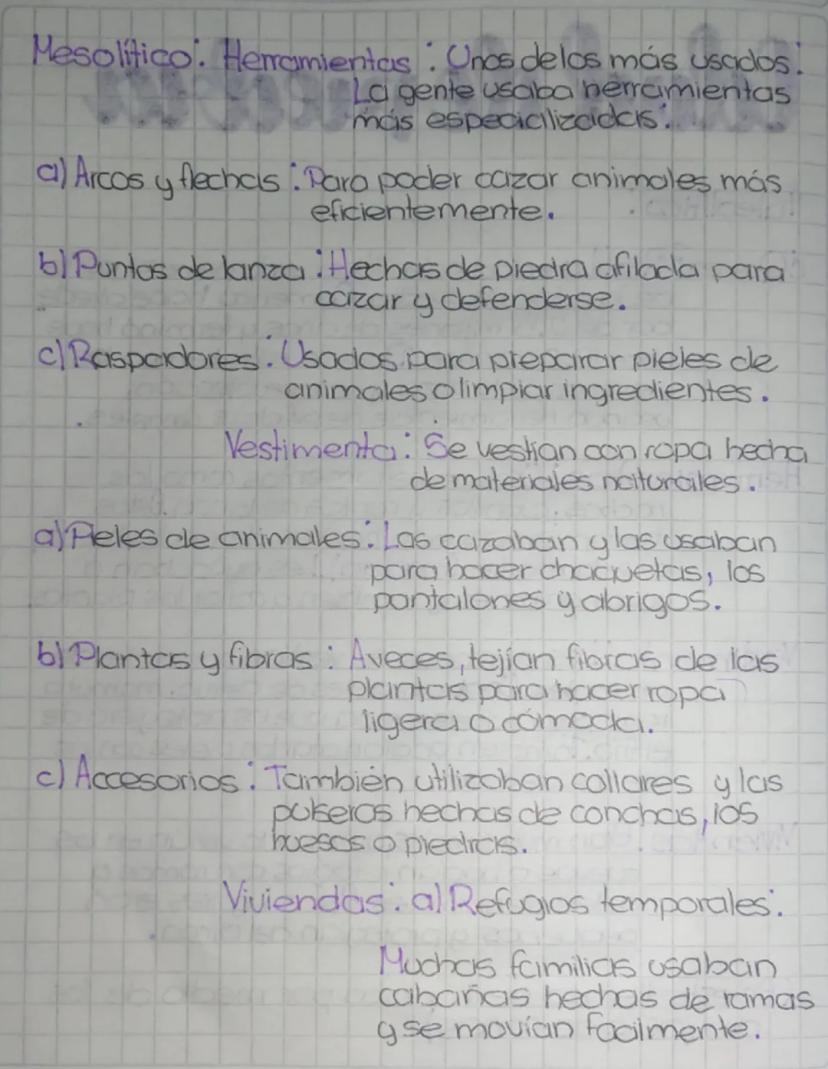 Mesolítico: Herramientas: Unos de los más usados:
La gente usaba herramientas
más especializadas:
a) Arcos y flechas: Para poder cazar animales más
eficientemente.
b) Puntas de lanza: Hechas de piedra afilada para
cazar y defenderse.
c) Raspadores: Usados para preparar pieles de
animales o limpiar ingredientes.
Vestimenta: Se vestían con ropa hecha
de materiales naturales.
a) Pieles de animales: Las cazaban y las usaban
para hacer chaquetas, los
pantalones y abrigos.
b) Plantas y fibras: Aveces, tejían fibras de las
plantas para hacer ropa
ligera o cómoda.
c) Accesorios: También utilizaban collares y las
pulseras hechas de conchas, los
huesos o piedras.
Viviendas: a) Refugios temporales:
Muchas familias usaban
cabañas hechas de ramas
y se movían facilmente.